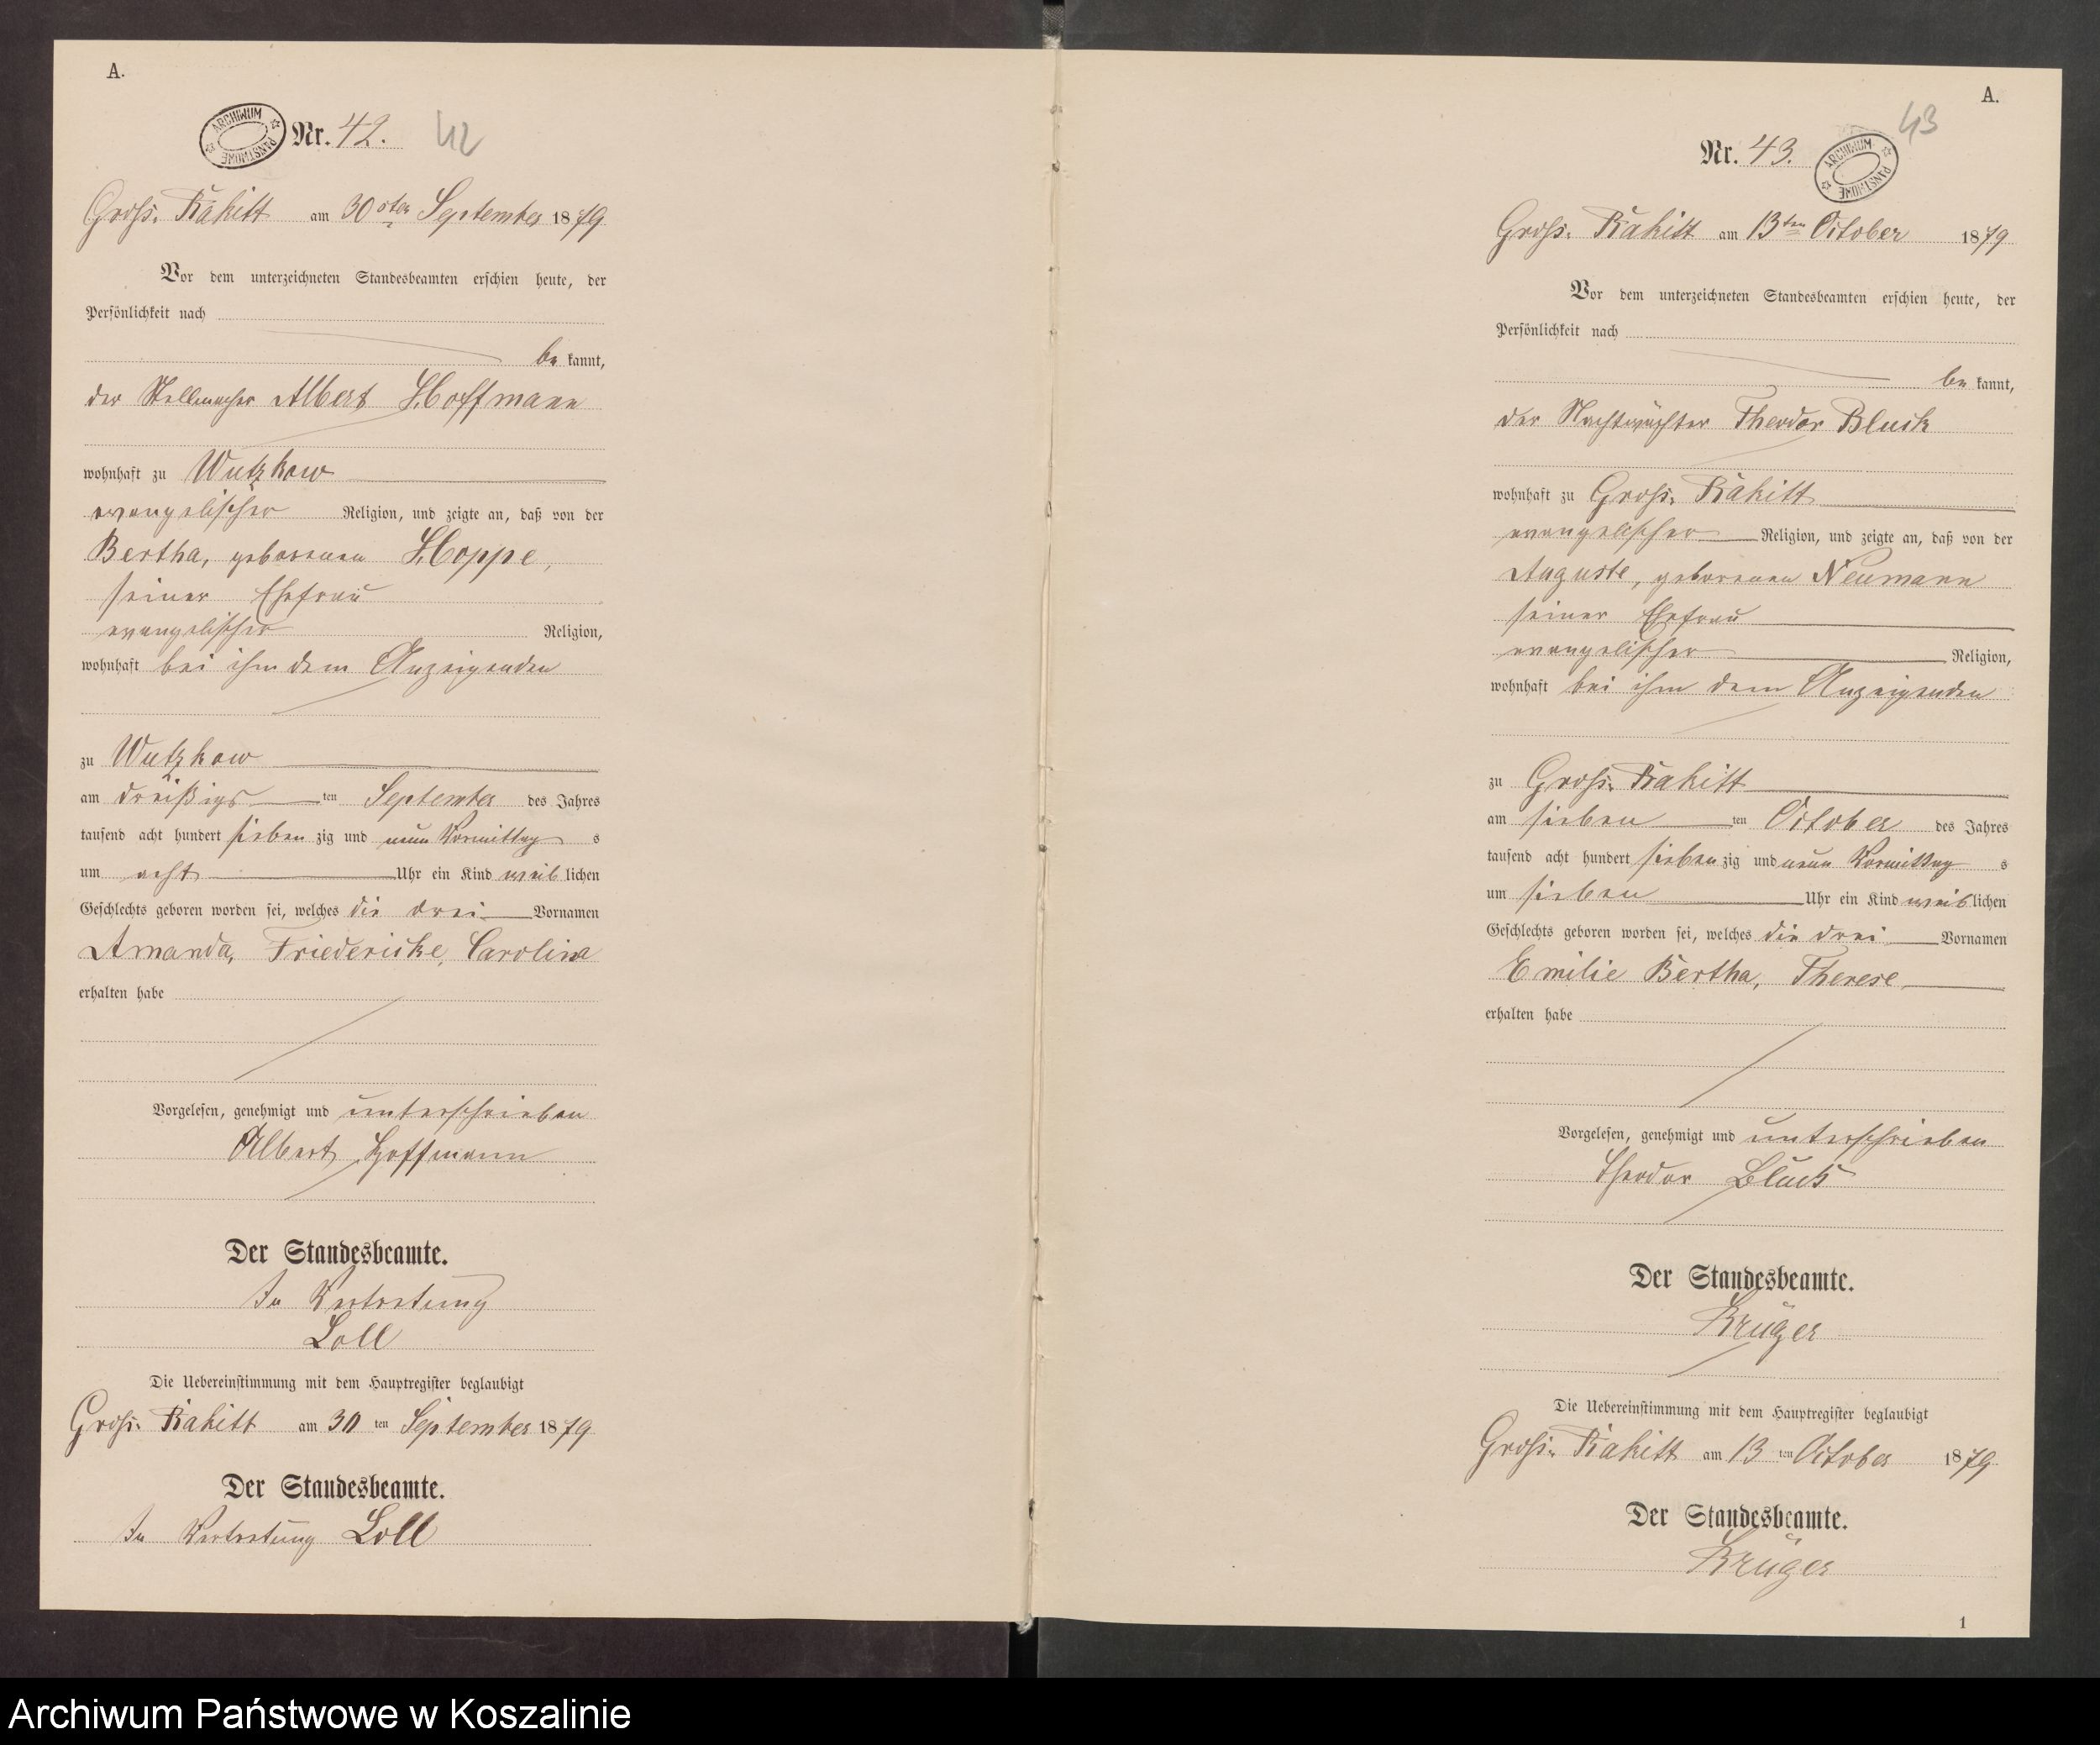 A.
ARCHIWUM PAŃSTWOWE
Nr. 42.
42
Groß-Rakitt am 30sten September 1879
Vor dem unterzeichneten Standesbeamten erschien heute, der
Persönlichkeit nach
be kannt,
der Stellmacher Albert Hoffmann
wohnhaft zu Wutzkow
evangelischer Religion, und zeigte an, daß von der
Bertha, geborenen Hoppe,
seiner Ehefrau
evangelischer Religion,
wohnhaft bei ihm dem Anzeigenden
zu Wutzkow
am dreißigs ten September des Jahres
tausend acht hundert sieben zig und neun Vormittag s
um acht Uhr ein Kind weib lichen
Geschlechts geboren worden sei, welches die drei Vornamen
Amanda, Friedericke, Carolina
erhalten habe
Vorgelesen, genehmigt und unterschrieben
Albert Hoffmann
Der Standesbeamte.
In Vertretung
Loll
Die Uebereinstimmung mit dem Hauptregister beglaubigt
Groß-Rakitt am 30 ten September 1879
Der Standesbeamte.
In Vertretung Loll
A.
43
Nr. 43.
ARCHIWUM PAŃSTWOWE
Groß-Rakitt am 13ten October 1879
Vor dem unterzeichneten Standesbeamten erschien heute, der
Persönlichkeit nach
be kannt,
der Nachtwächter Theodor Bluck
wohnhaft zu Groß-Rakitt
evangelischer Religion, und zeigte an, daß von der
Auguste, geborenen Neumann
seiner Ehefrau
evangelischer Religion,
wohnhaft bei ihm dem Anzeigenden
zu Groß-Rakitt
am sieben ten October des Jahres
tausend acht hundert sieben zig und neun Vormittag s
um sieben Uhr ein Kind weib lichen
Geschlechts geboren worden sei, welches die drei Vornamen
Emilie Bertha, Therese
erhalten habe
Vorgelesen, genehmigt und unterschrieben
Theodor Bluck
Der Standesbeamte.
Krüger
Die Uebereinstimmung mit dem Hauptregister beglaubigt
Groß-Rakitt am 13 ten October 1879
Der Standesbeamte.
Krüger
1
Archiwum Państwowe w Koszalinie